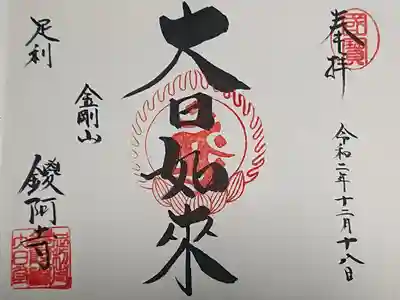 奉拝
令和二年十二月十八日
大日如來
金剛山
足利
鑁阿寺